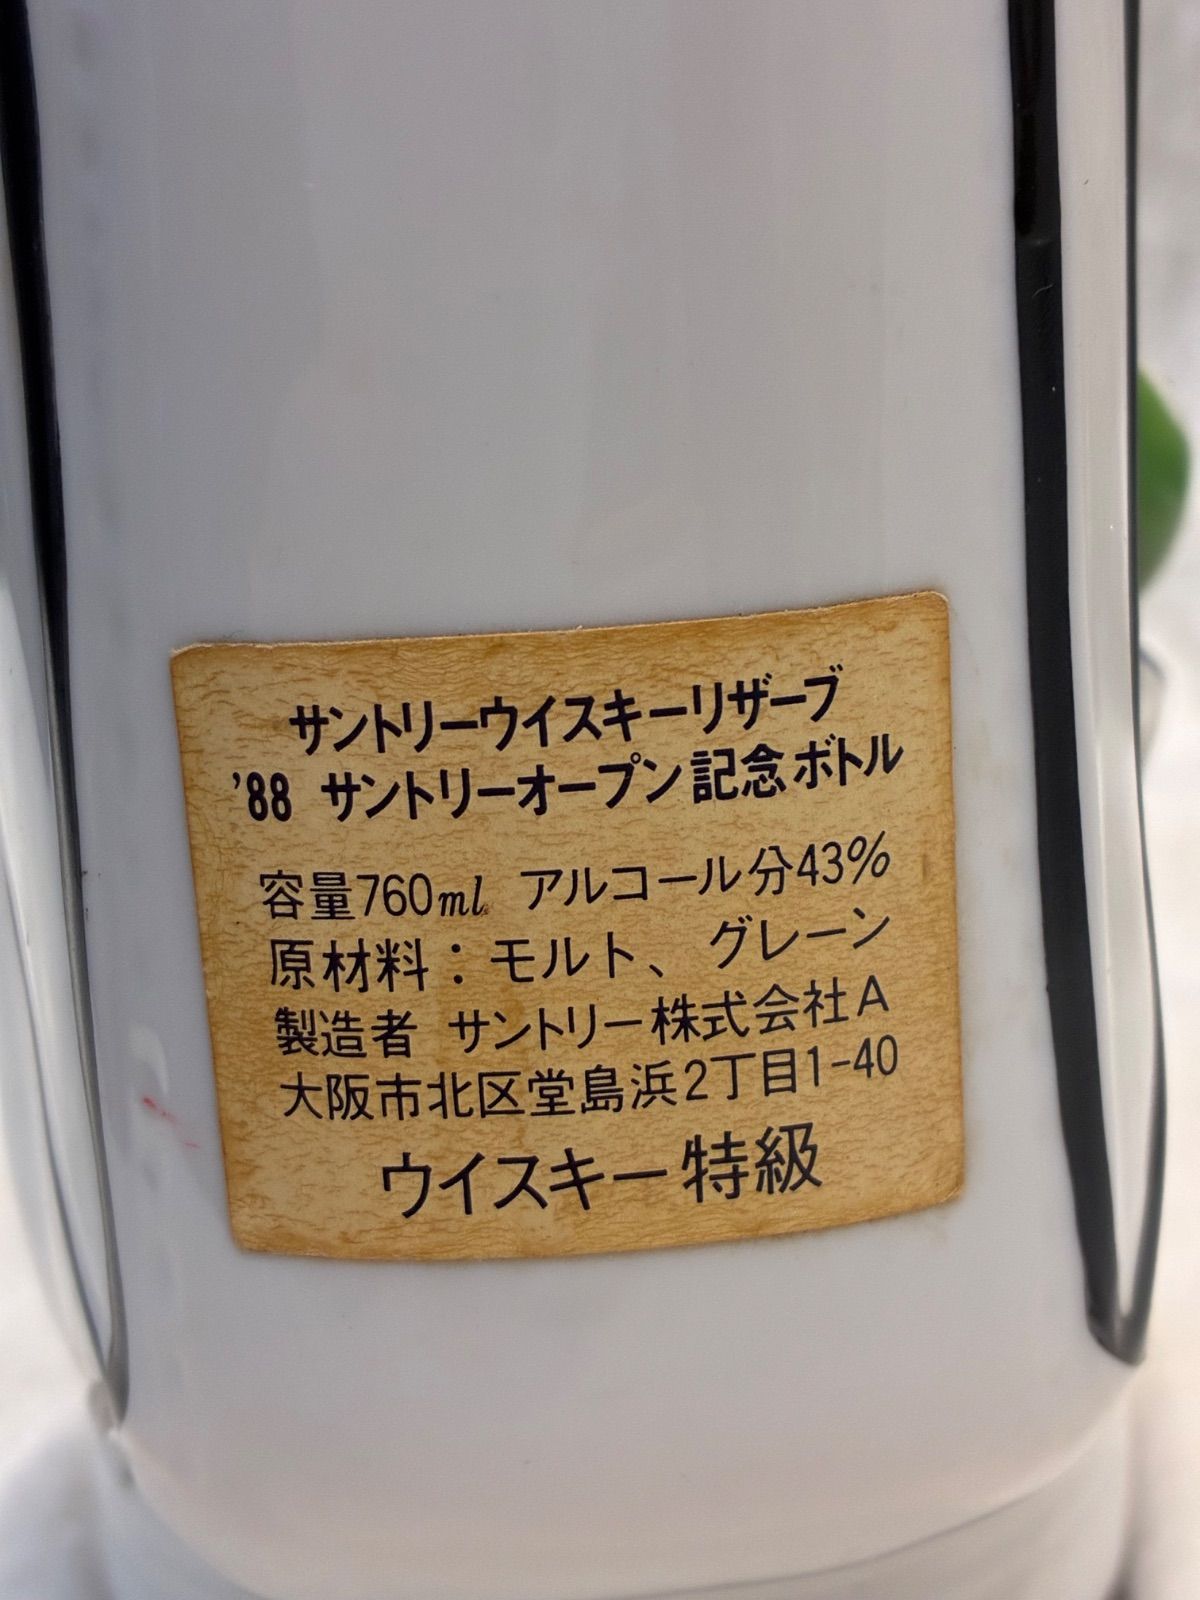 サントリーウイスキーリザーブ
'88 サントリーオープン記念ボトル
容量760ml アルコール分43%
原材料：モルト、グレーン
製造者 サントリー株式会社A
大阪市北区堂島浜2丁目1-40
ウイスキー特級